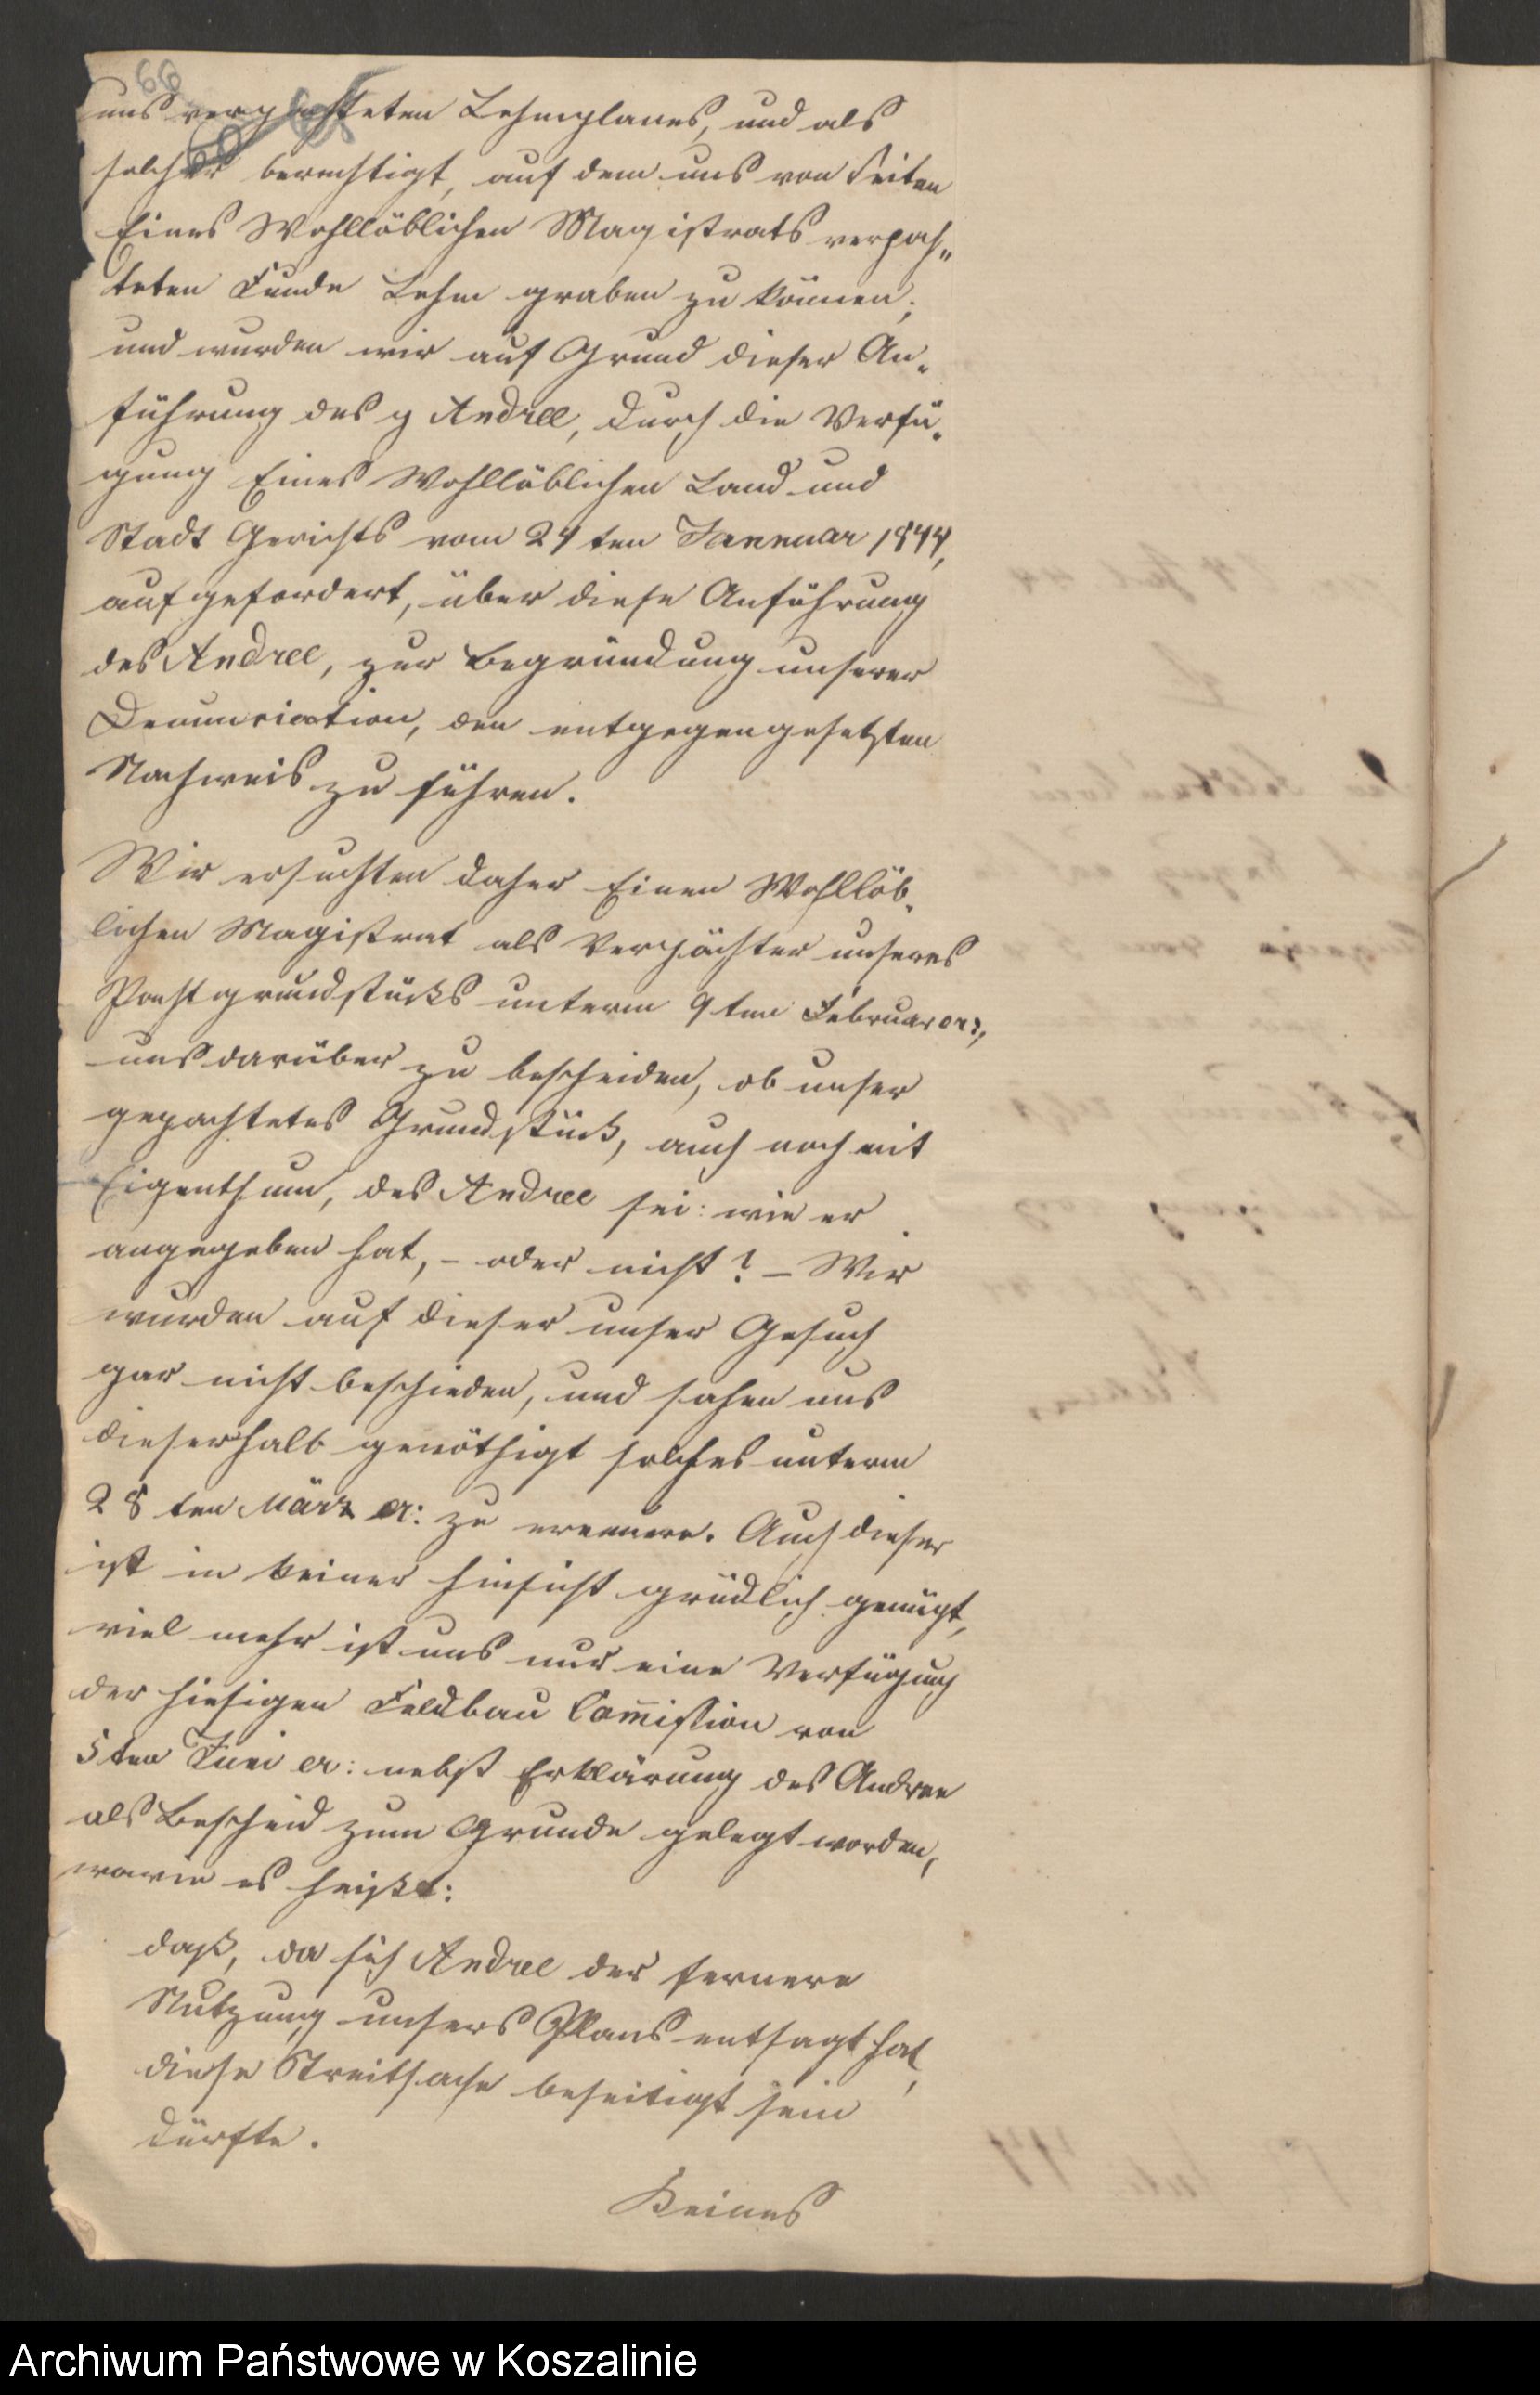 66
uns verpachteten Lehmplanes, und als
solcher berechtigt, auf dem uns von Seiten
Eines Wohllöblichen Magistrats verpach„
teten Funde Lehm graben zu können;
und wurden wir auf Grund dieser An„
führung des Andree, durch die Verfü„
gung Eines Wohllöblichen Land und
Stadt Gerichts vom 24ten Jannuar 1844,
aufgefordert, über diese Anführung
des Andree, zur Begründung unserer
Denunciation, den entgegengesetzten
Nachweis zu führen.
Wir ersuchten daher Einen Wohllöb„
lichen Magistrat als Verpächter unseres
Pachtgrundstücks unterm 9ten Februar cr:,
uns darüber zu bescheiden, ob unser
gepachtetes Grundstück, auch noch mit
Eigenthum, des Andree sei: wie er
angegeben hat, – oder nicht? – Wir
wurden auf dieser unser Gesuch
gar nicht beschieden, und sahen uns
dieserhalb genöthigt solches unterm
28ten März cr: zu erneuern. Auch dieser
ist in keiner Hinsicht grüdlich genügt,
viel mehr ist uns nur eine Verfügung
der hiesigen Feldbau Com̄ission von
5ten Juni cr: nebst Erklärung des Andree
als Bescheid zum Grunde gelegt worden,
worin es heißt:
daß, da sich Andree der fernere
Nutzung unsers Plans entsagt hat,
diese Streitsache beseitigt sein
dürfte.
Keines
Archiwum Państwowe w Koszalinie